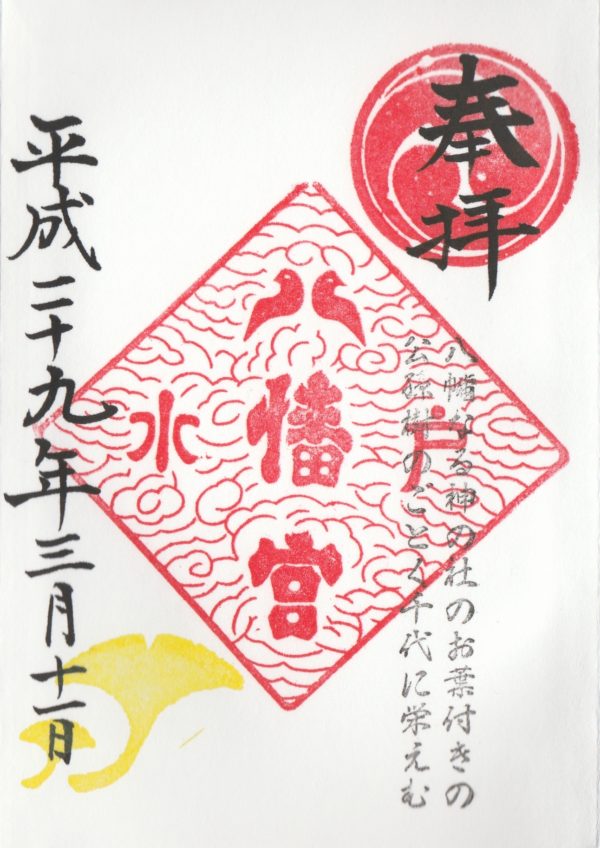 奉拝
八幡なる神の社のお葉付きの
公孫樹のごとく千代に栄えむ
水戸
八幡宮
平成二十九年三月十一日